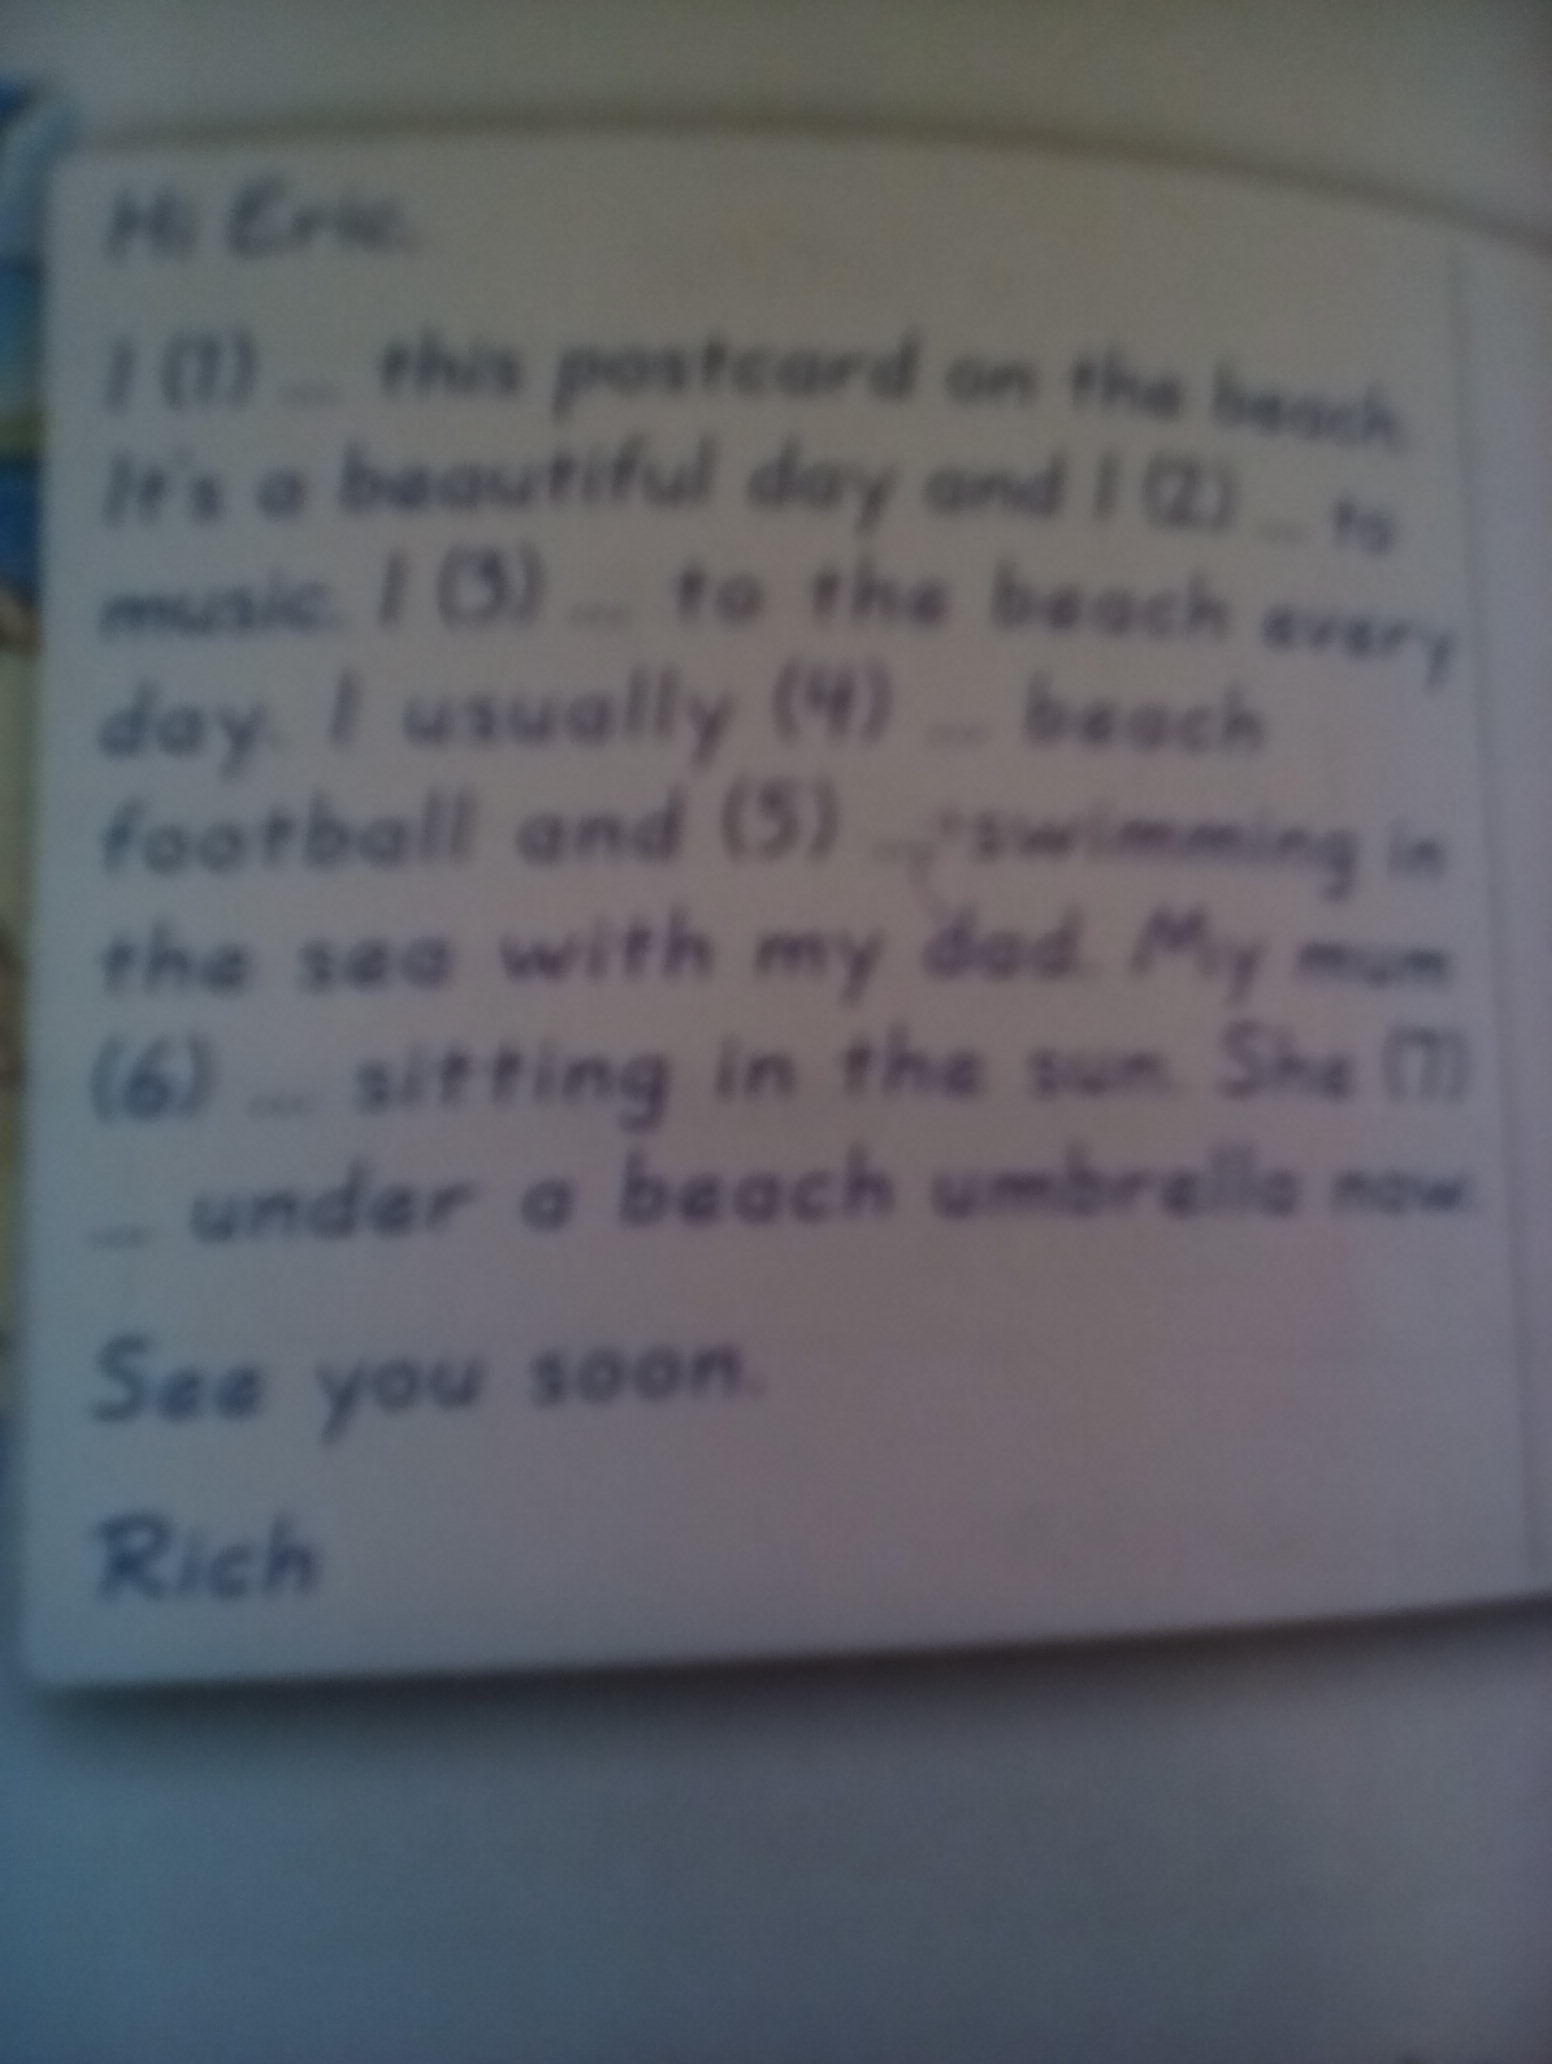 Hi Eric.
I (1) ... this postcard on the beach.
It's a beautiful day and I (2) ... to
music. I (3) ... to the beach every
day. I usually (4) ... beach
football and (5) ... swimming in
the sea with my dad. My mum
(6) ... sitting in the sun. She (7)
... under a beach umbrella now.
See you soon.
Rich